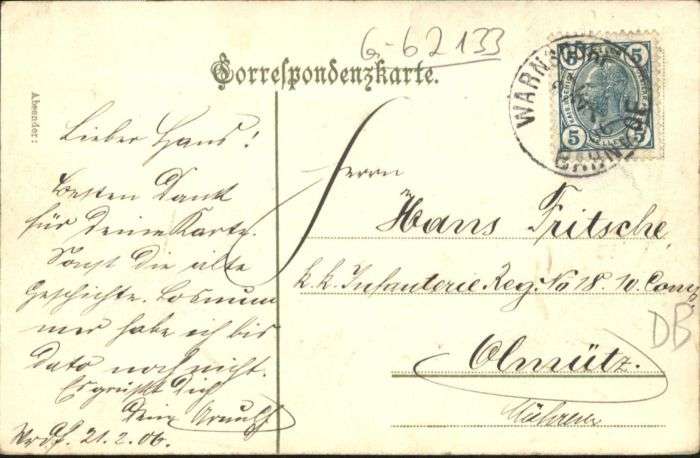 G-62133
Correspondenzkarte.
5 5
5 5
WARNSDORF
WARNSDF
Absender:
Lieber Hans!
Besten Dank
für Deine Karte.
Sonst die alte
Geschichte. Losnum
mer habe ich bis
dato noch nicht.
Es grüßt Dich
Dein Arnulf
Wrdf. 21.2.06.
Herrn
Hans Fritsche
k. k. Infanterie Reg. No 18. 10. Comp
Olmütz.
Mähren
DB